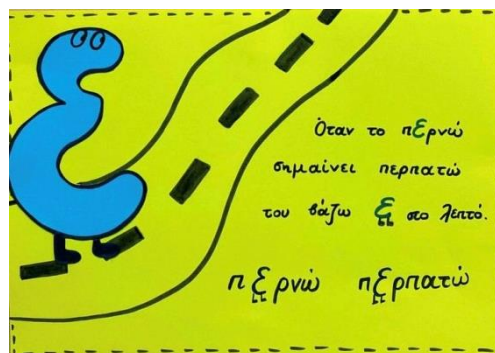 Όταν το πΕρνώ
σημαίνει περπατώ
του βάζω ξ στο λεπτό.
πξρνώ πξρπατώ